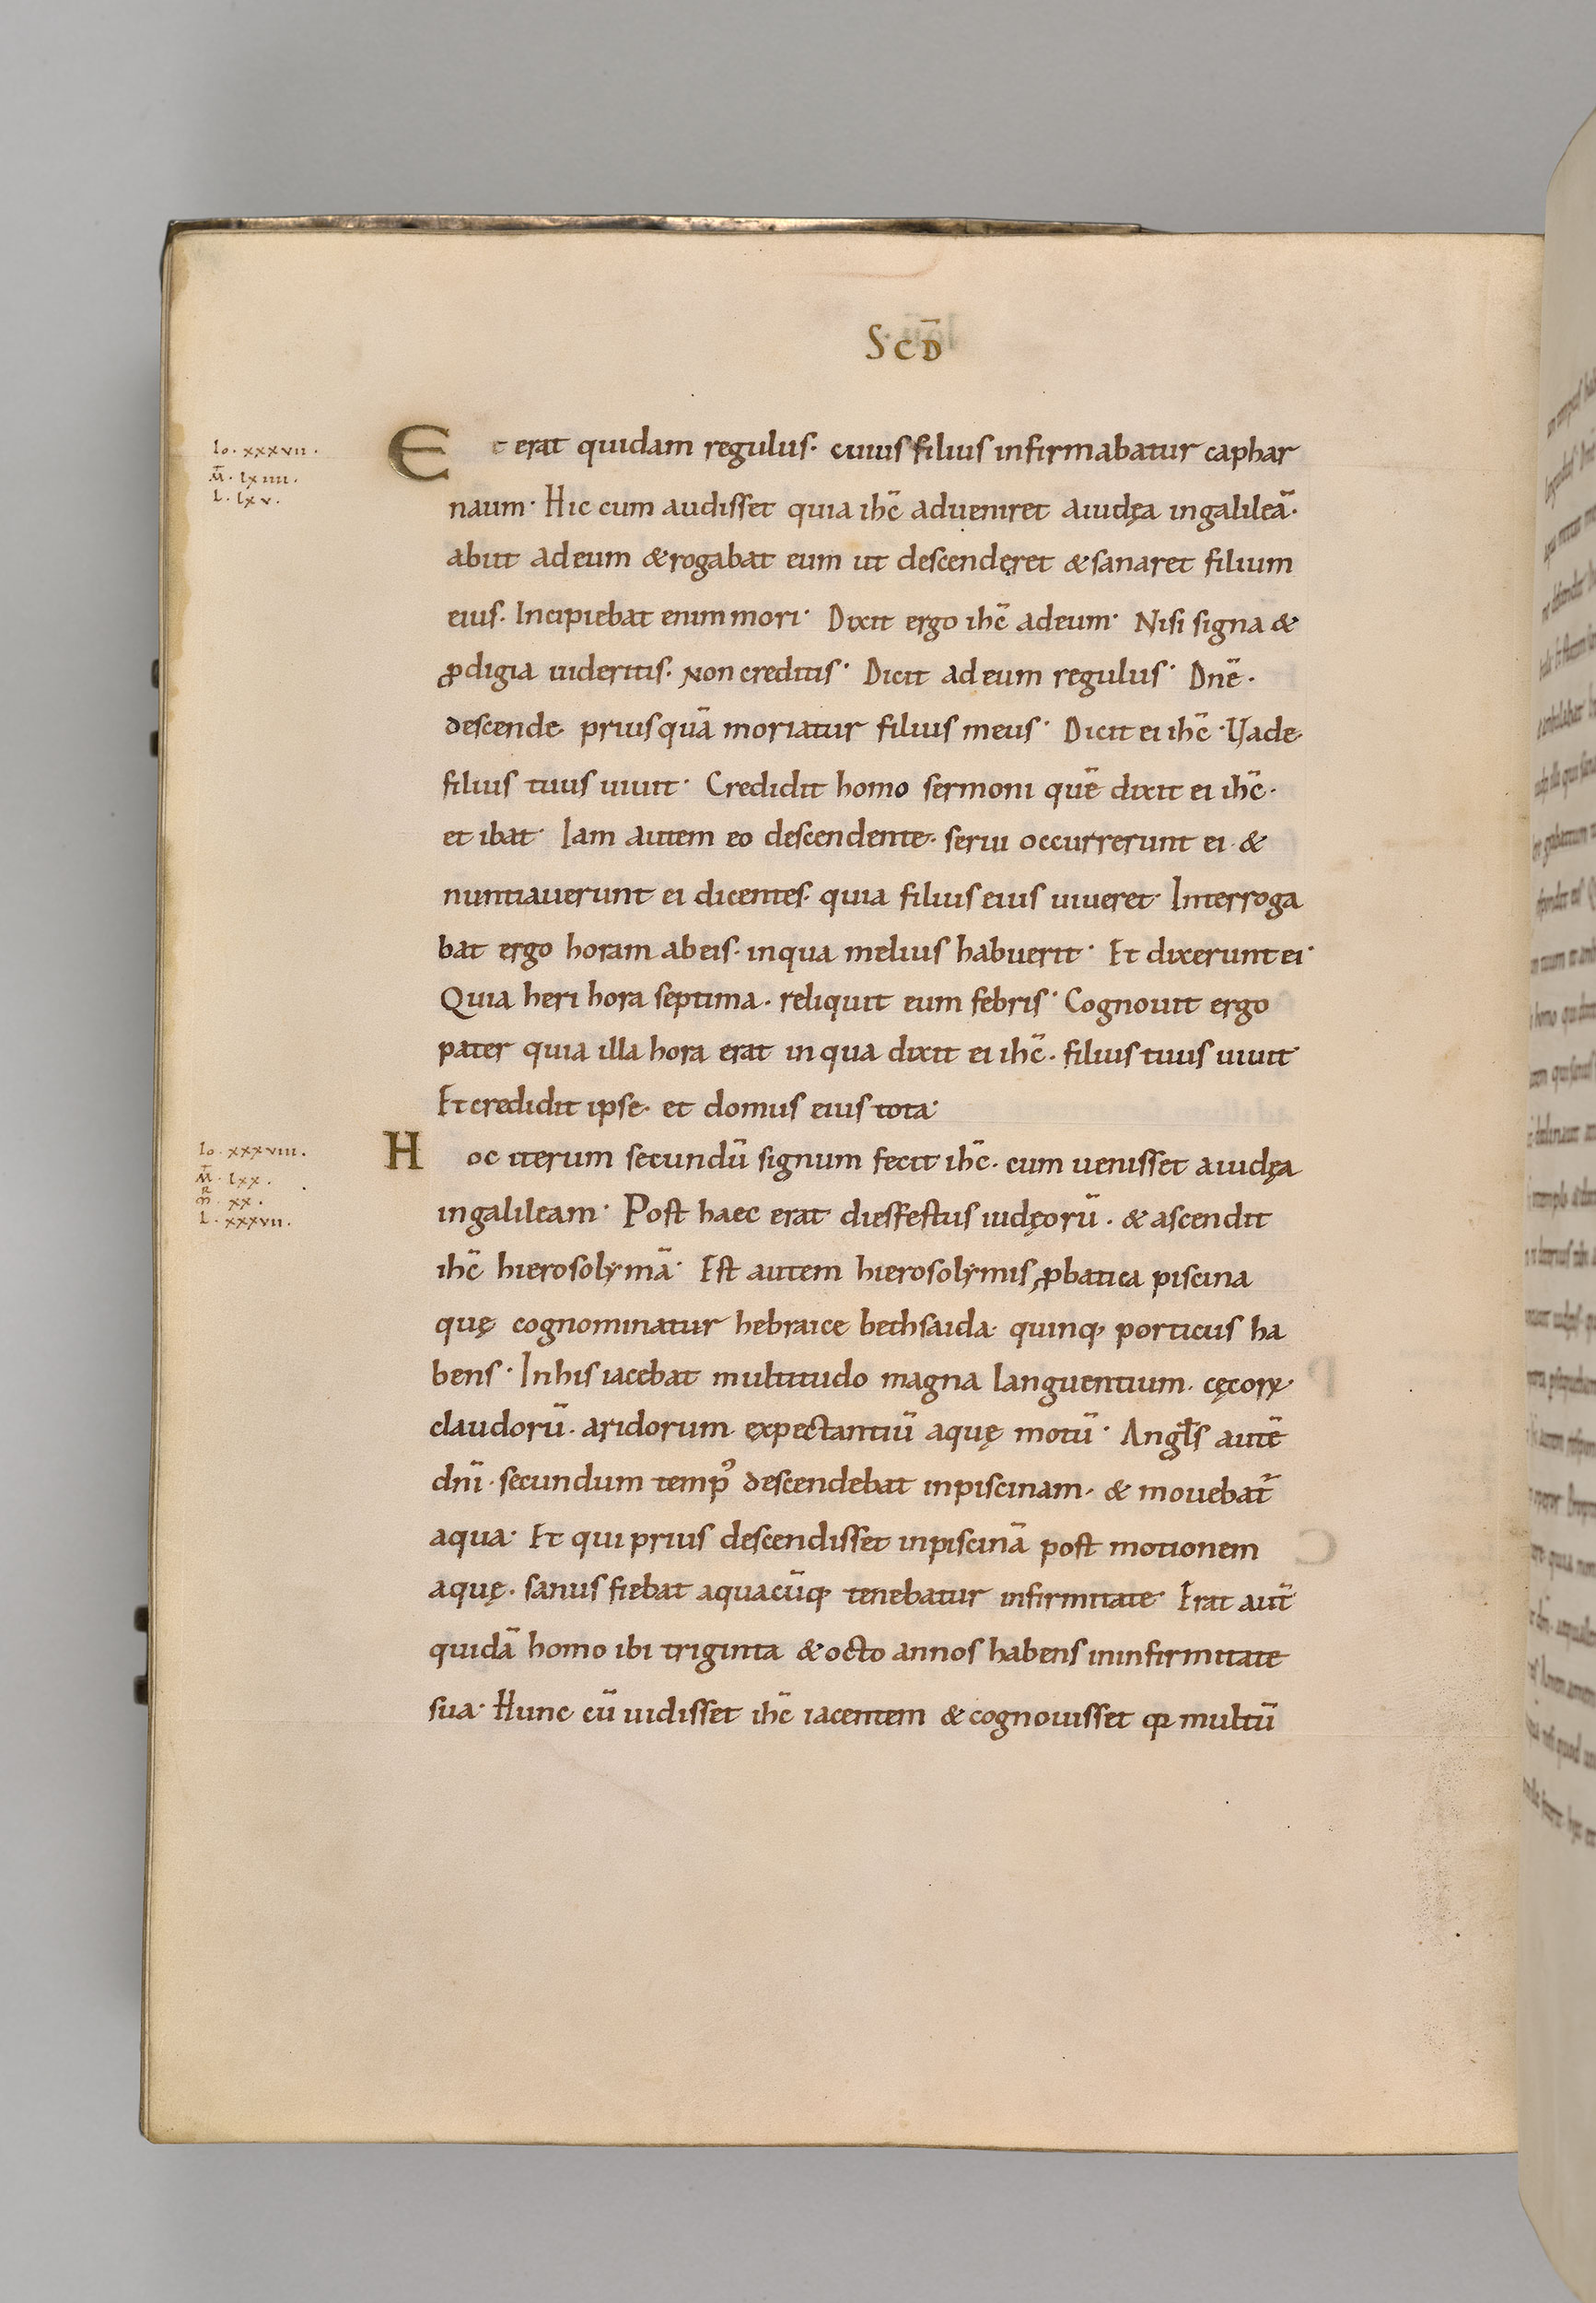 SCD̄
Io · xxxvii ·
M̄ · lxiiii ·
L · lxv ·
Et erat quidam regulus · cuius filius infirmabatur caphar
naum · Hic cum audisset quia ihc̄ adueniret aiudęa ingalileā ·
abiit adeum &rogabat eum ut descendęret &sanaret filium
eius · Incipiebat enim mori · Dixit ergo ihc̄ adeum · Nisi signa &
ꝓdigia uideritis · Non creditis · Dicit adeum regulus · Dnē ·
descende priusquā moriatur filius meus · Dicit ei ihc̄ · Uade
filius tuus uiuit · Credidit homo sermoni quē dixit ei ihc̄ ·
et ibat · Iam autem eo descendente · serui occurrerunt ei · &
nuntiauerunt ei dicentes · quia filius eius uiueret · Interroga
bat ergo horam abeis · inqua melius habuerit · Et dixerunt ei ·
Quia heri hora septima · reliquit eum febris · Cognouit ergo
pater quia illa hora erat in qua dixit ei ihc̄ · filius tuus uiuit ·
Et credidit ipse · et domus eius tota ·
Io · xxxviii ·
M̄ · lxx ·
mR · xx ·
L · xxxvii ·
Hoc iterum secundū signum fecit ihc̄ · cum uenisset aiudęa
ingalileam · Post haec erat diesfestus iudęorū · & ascendit
ihc̄ hierosolymā · Est autem hierosolymis ꝓbatica piscina
quę cognominatur hebraice bethsaida · quinq; porticus ha
bens · Inhis iacebat multitudo magna languentium · cęcoꝝ ·
claudorū · aridorum · expectantiū aquę motū · Angl̄s autē
dnī · secundum temp᾿ descendebat inpiscinam · & mouebat̄
aqua · Et qui prius descendisset inpiscinā post motionem
aquę · sanus fiebat aquacūq; tenebatur infirmitate · Erat aut̄
quidā homo ibi triginta &octo annos habens ininfirmitate
sua · Hunc cū uidisset ihc̄ iacentem &cognouisset qꝛ multū